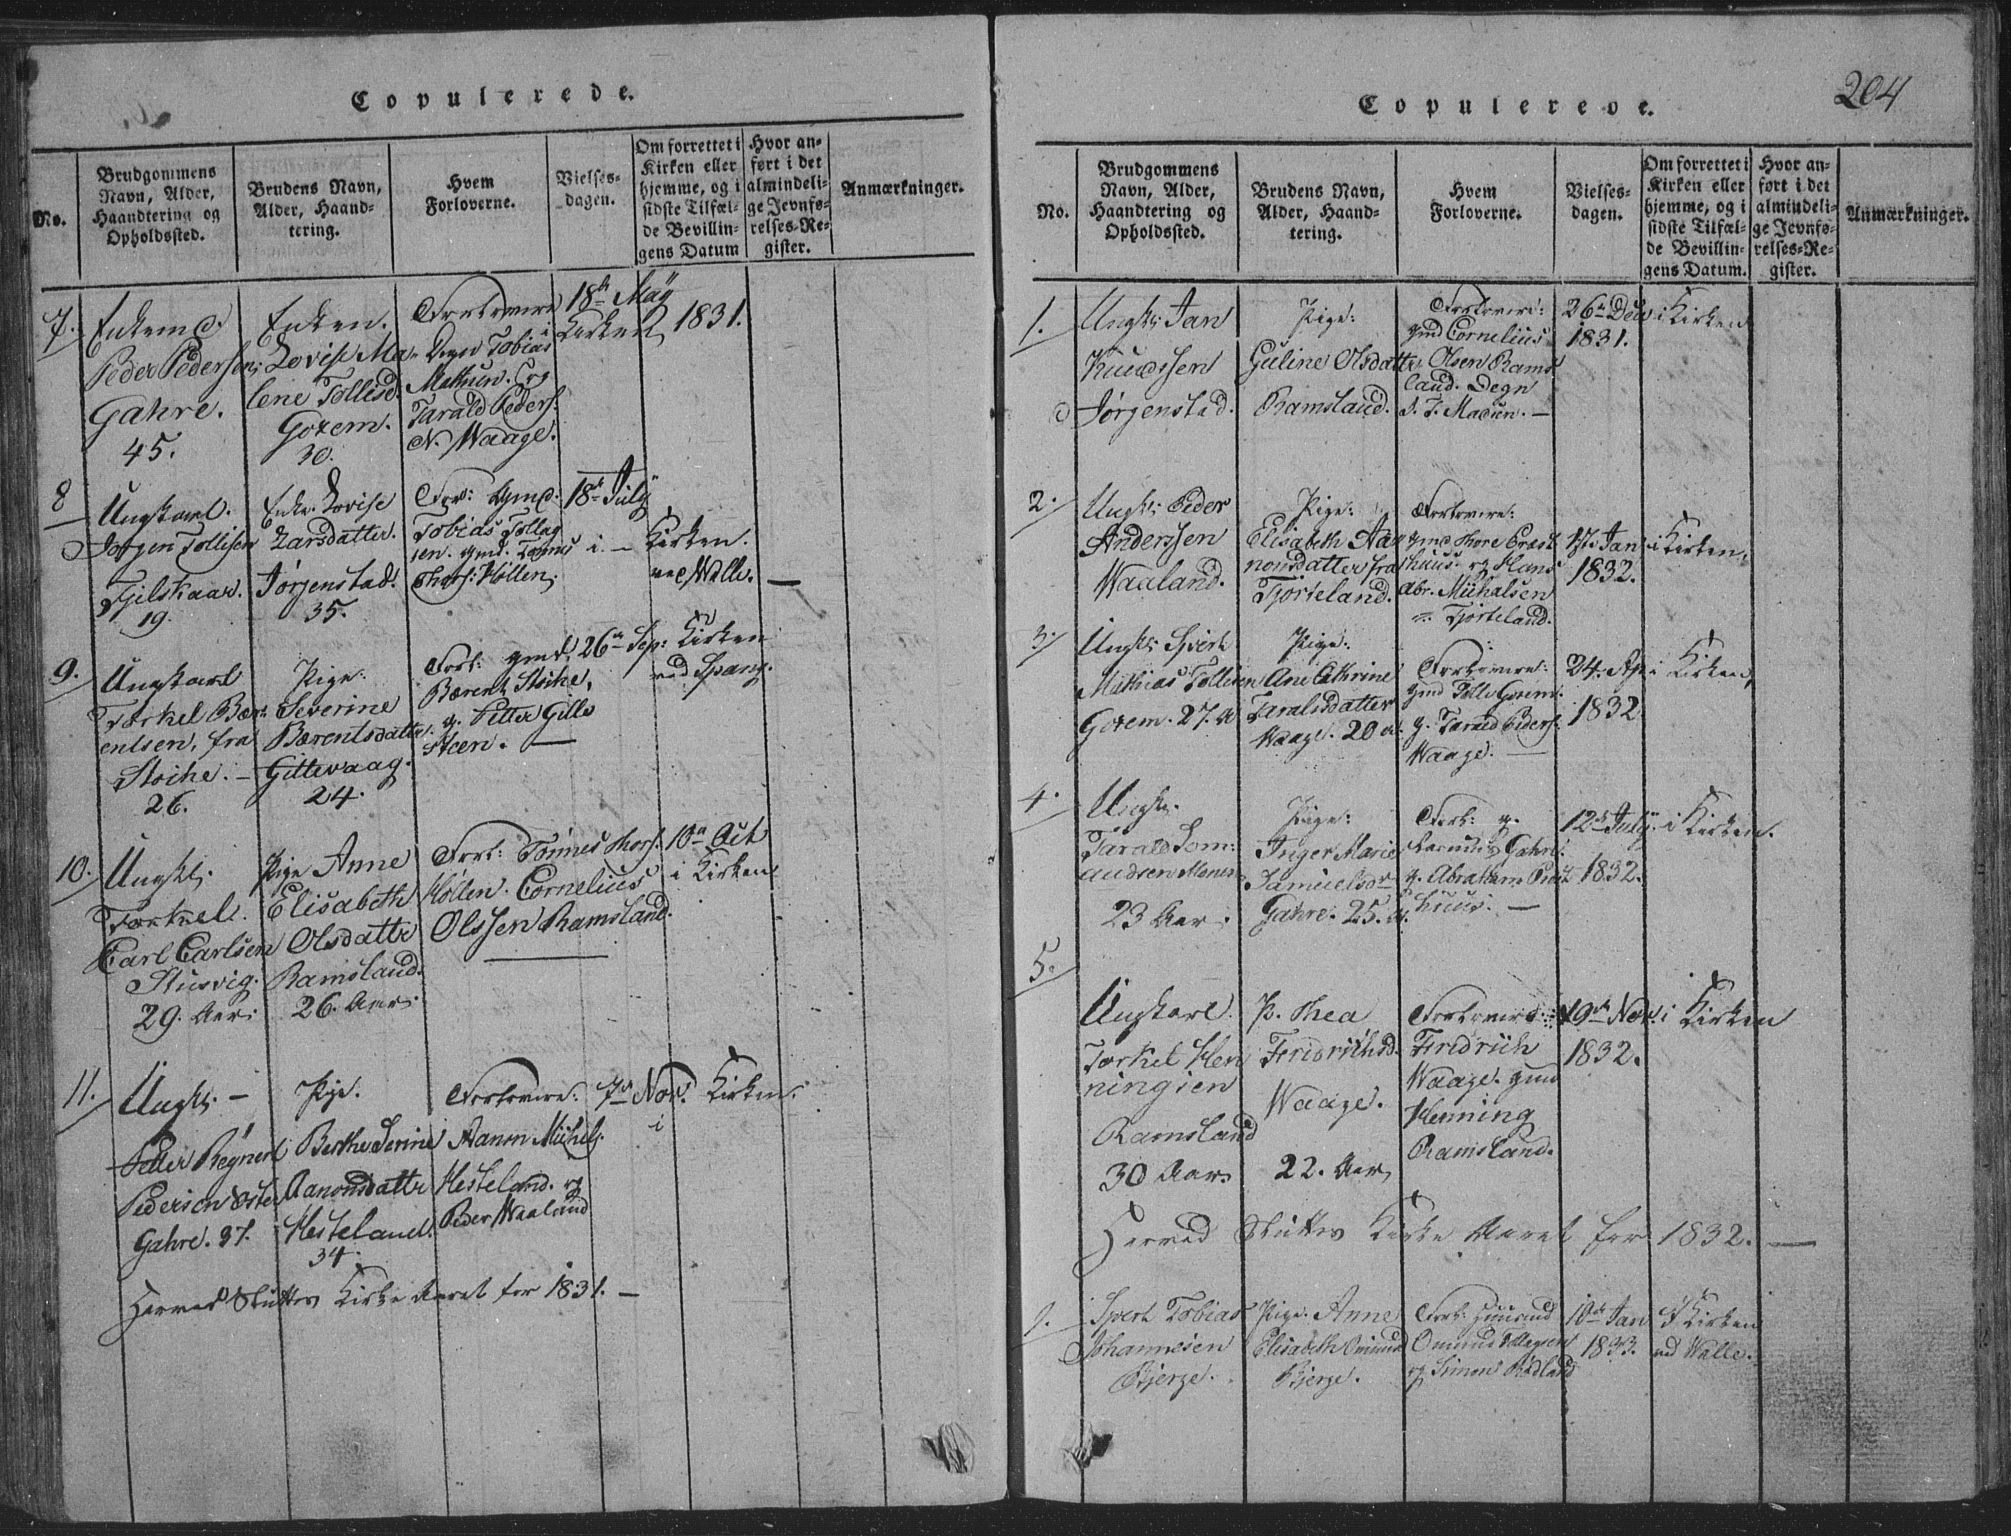 Copulerede.
No.
Brudgommens
Navn, Alder,
Haandtering og
Opholdssted.
Brudens Navn,
Alder, Haand-
tering.
Hvem
Forloverne.
Vielses-
dagen.
Om forrettet i
Kirken eller
hjemme, og i
sidste Tilfæl-
de Bevillin-
gens Datum
Hvor an-
ført i det
almindeli-
ge Jevnfø-
relses-Re-
gister.
Anmærkninger.
7.
Enkemd.
Peder Pedersen
Gahre.
45.
Enken.
Lovise Ma-
lene Tollisd.
Gorem.
30.
Forlovere
Degn Tobias
Tarald Peders.
N. Waage.
18de May
i Kirken 1831.
8
Ungkarl.
Jørgen Tollisen
Fjelskaar.
19.
Enke. Lovise
Larsdatter.
Jørgenstad.
35.
For: Gmd:
Tobias Tollag
sen. gmd. Tønnes
Thors: Høllen.
18de July
i - Kirken.
ved Walle. —
9.
Ungkarl
Torkel Bær-
entsen, fra
Stoihe. -
26.
Pige:
Severine
Bærentsdatter
Gittevaag.
24.
Forl: gmd.
Bærent Stoihe,
g. Petter Gitle
Steen. —
26de Sep: Kirken
ved Spang.
10.
Ungkl.
Torkel.
Carl Carlsen
Stusvig.
29. Aar.
Pige Anne
Elisabeth
Olsdatter
Ramsland.
26. Aar.
Forl: Tönnes Thors.
Høllen. Cornelius
Olssen Ramsland.
10de Oct
i Kirken
11.
Ungk: -
Petter Regnert
Pedersen Øste
Gahre. 37.
Pige.
Berthe Serine
Aanonsdatter
Hesteland.
34.
Forlovere:
Aanon Michels.
Hesteland. og
Peder Waaland
7de Nov. i Kirken.
Herved Sluttes Kirke Aaret for 1831. —
204
Copulerede.
No.
Brudgommens
Navn, Alder,
Haandtering og
Opholdssted.
Brudens Navn,
Alder, Haand-
tering.
Hvem
Forloverne.
Vielses-
dagen.
Om forrettet i
Kirken eller
hjemme, og i
sidste Tilfæl-
de Bevillin-
gens Datum.
Hvor an-
ført i det
almindeli-
ge Jevnfø-
relses-Re-
gister.
Anmærkninger.
1.
Ungk: Jan
Knudssen
Jørgenstad.
Pige:
Guline Olsdatter
Ramsland.
Forlovere:
gmd Cornelius
Olsen Rams
land. Degn
S. T. Madsen. —
26de Dec i Kirken
1831.
2.
Ungk: Peder
Anderssen
Waaland.
Pige:
Elisabeth Aa
nonsdatter fra
Fjorteland.
Forlovere:
gmd Thore Præst
huus. og Hans
Abr. Michalsen
Fjorteland.
Jan i Kirken.
1832.
3.
Ungk: Sivert
Mathias Tollisen
Gorem. 27. a
Pige:
Ane Cathrine
Taralsdatter
Waage. 20 a.
Forlovere:
gmd Tolle Gorem.
g. Tarald Peders.
Waage. —
24. Ap. i Kirken,
1832
4.
Ungk.
Tarald Tom:
23 Aar.
Pige:
Inger Marie
Samuelsdr
Gahre. 25. a.
Forl: g.
Rasmus Gahre.
g. Abraham Præst
huus. —
12de July i Kirken.
1832.
5.
Ungkarl
Torkel Hen
ningsen
Ramsland
30 Aar.
P. Thea
Fridrichsd.
Waage.
22. Aar
Forlovere:
Fridrich
Waage. gmd
Henning
Ramsland.
19de Nov. i Kirken
1832.
Herved Sluttes Kirke Aaret for 1832. —
1.
Sivert Tobias
Johannesen
Bjerge.
Pige: Anne
Elisabeth Omund
Bjerge.
Forl: Huusmd
Omund
og Simon Rødland
10de Jan i Kirken
1833. ved Walle.